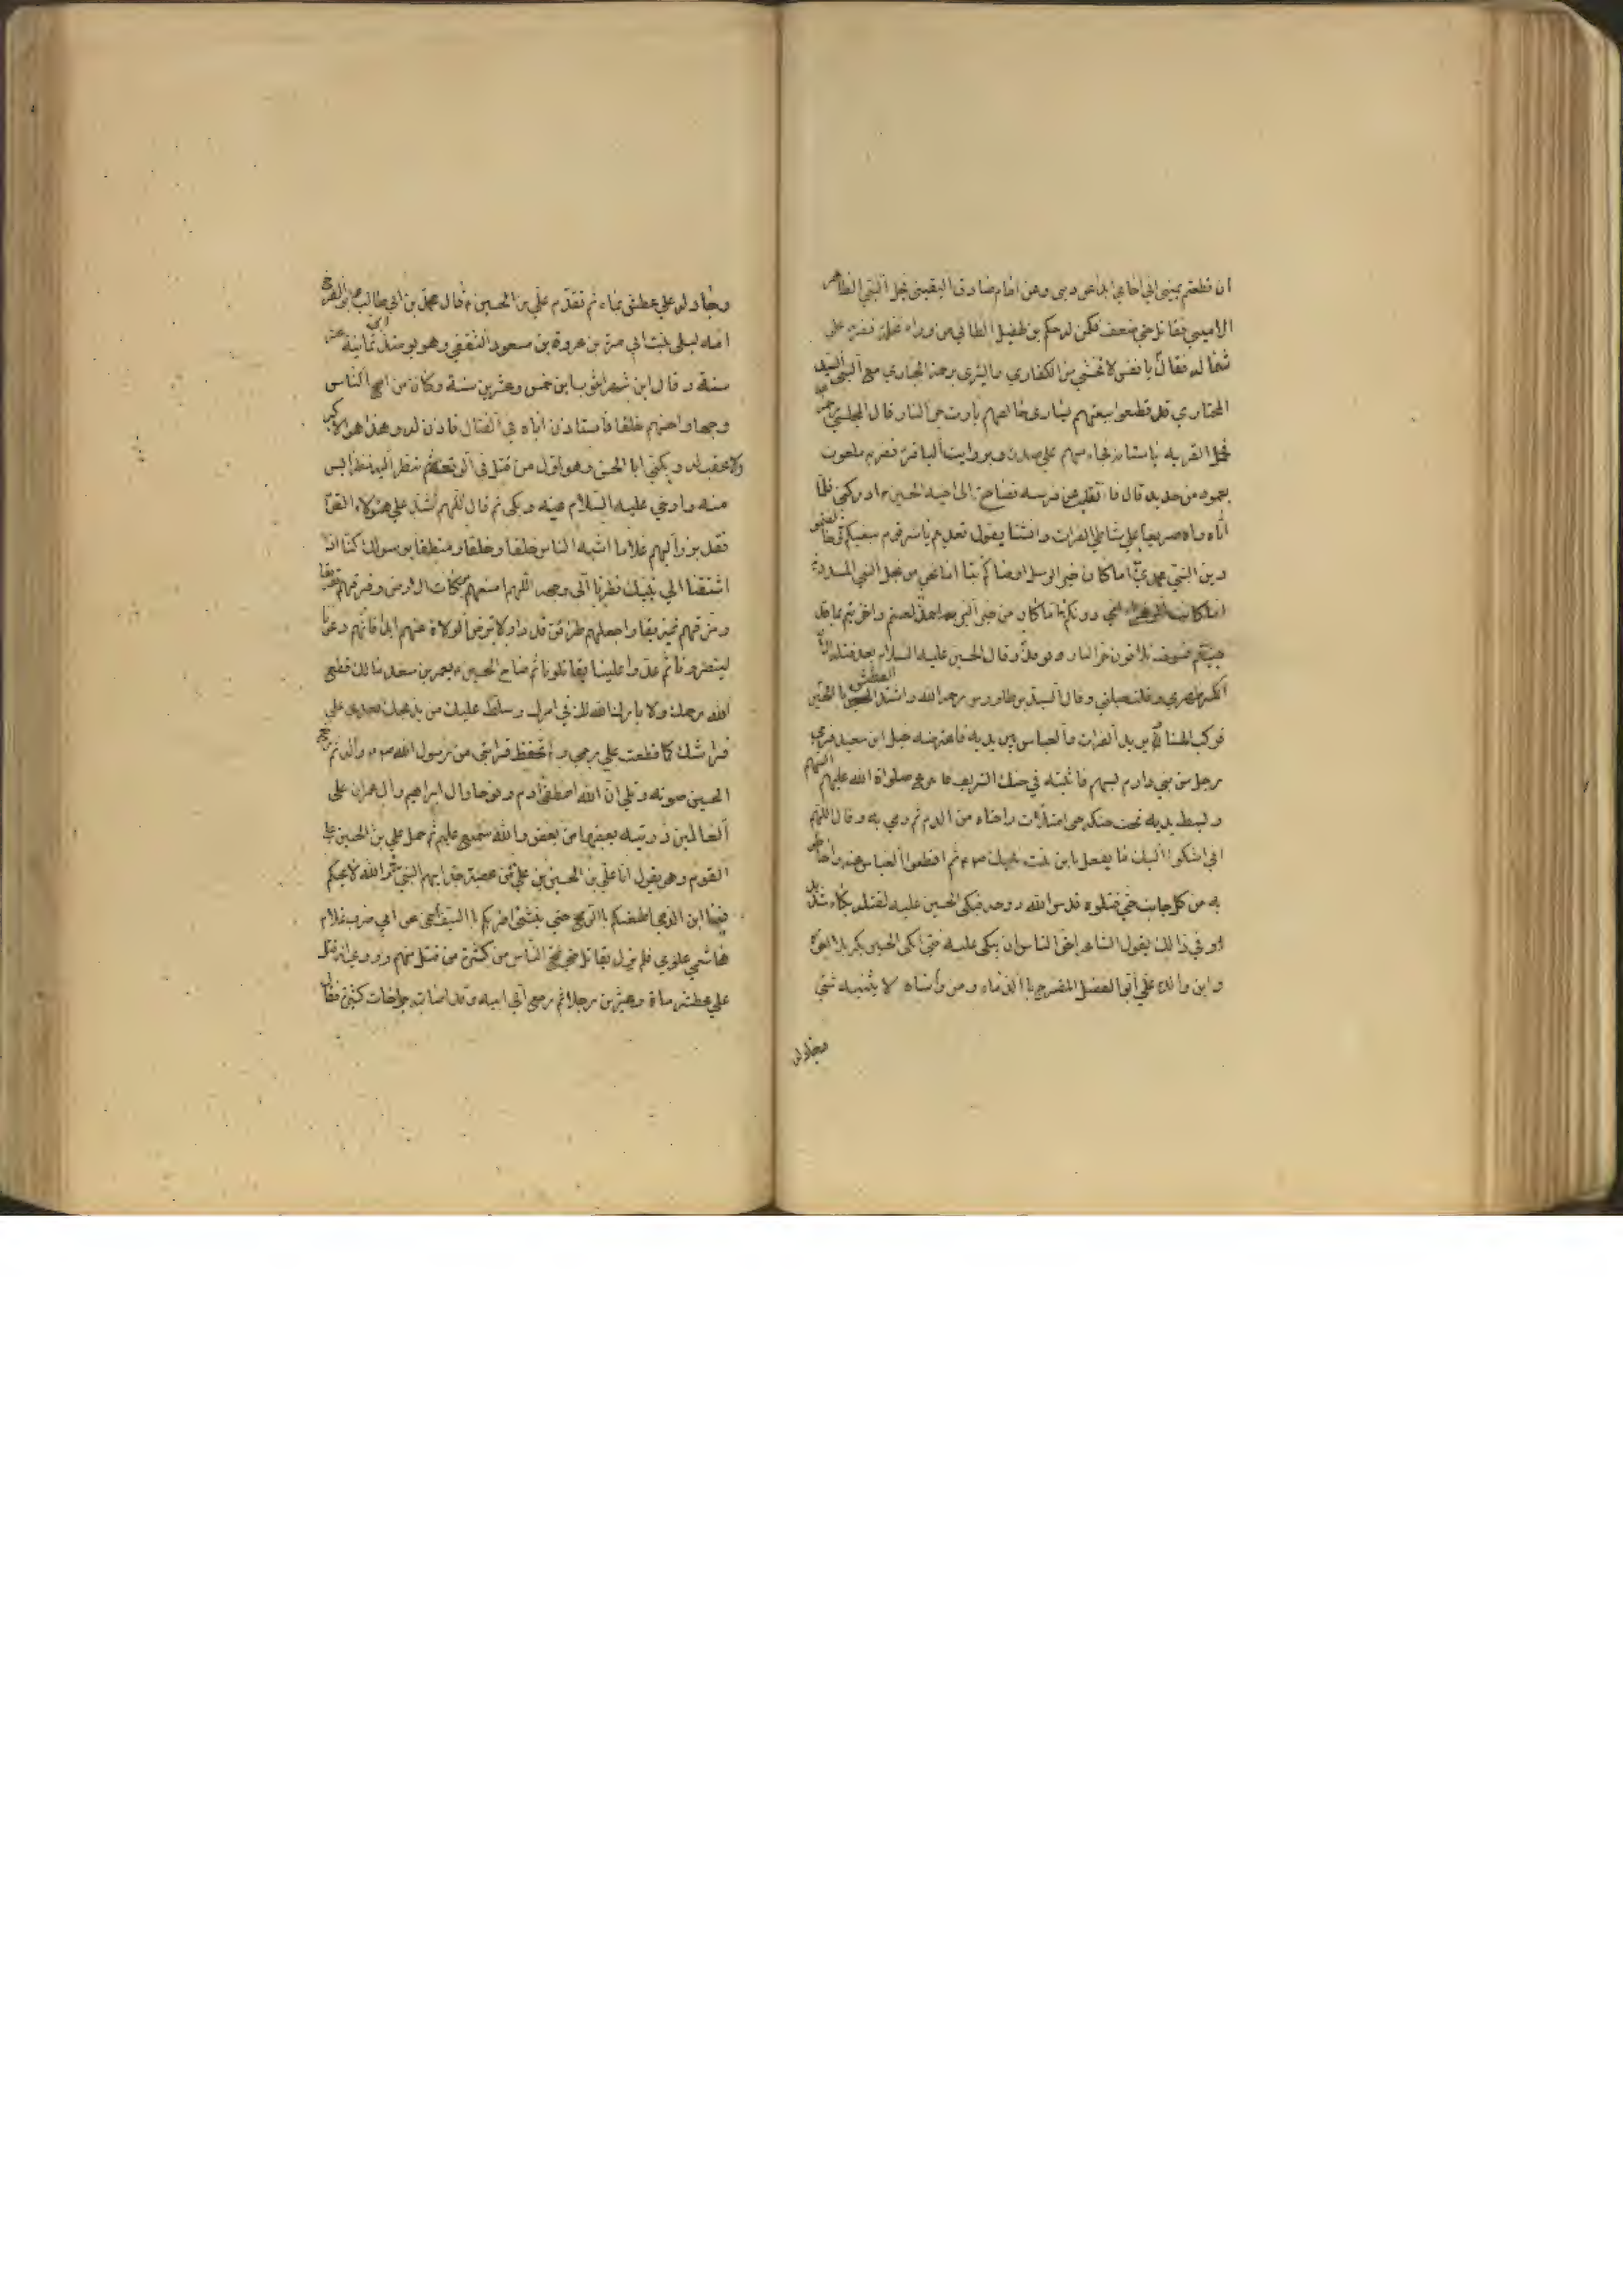 ان قطعتم يميني اني احامي ابدا عن ديني وعن امام صادق اليقيني نجل النبي الطاهر
الاميني فقاتل حتي ضعف فكمن له حكم بن طفيل الطائي من وراء نخلة فضربه علي
شماله فقال يا نفس لا تخشي من الكفاري وابشري برحمة الجباري مع النبي السيد
المختاري قد قطعوا ببغيهم يساري فاصلهم يا رب حر النار وقال المجلسي
فجاءه سهم علي صدره وبروايت فضربه ملعون
بعمود من حديد قال فانقلب عن فرسه فصاح الى اخيه الحسين ادركني فلما
اتاه راه صريعا علي شاطي الفرات وانشأ يقول تعديتم يا شر قوم ببغيكم
دين النبي محمد اما كان خير الرسل اوصاكم بنا اما نحن من نجل النبي المسدد
اما كانت الزهراء امي دونكم اما كان من خير البرية احمد لعنتم واخزيتم بما قد
جنيتم فسوف تلاقون حر النار وقال الحسين عليه السلام بعد قتله الان
انكسر ظهري وقلت حيلتي وقال السيد بن طاووس رحمه الله واشتد العطش بالحسين
فركب المسناة يريد الفرات والعباس بين يديه فاعترضه خيل ابن سعيد فرمي
رجل من بني دارم بسهم فاثبته في حنكه الشريف فانتزع صلواة الله عليهم السهم
وبسط يديه تحت حنكه حتي امتلأت راحتاه من الدم ثم رمي به وقال اللهم
اني اشكوا اليك ما يفعل بابن بنت نبيك ثم اقتطعوا العباس عنه واحاطو
به من كل جانب حتي قتلوه قدس الله روحه فبكى الحسين عليه لقتله بكاء شديد
وفي ذالك يقول الشاعر احق الناس ان يبكى عليه فتي ابكى الحسين بكربلا اخوه
وابن والده علي ابو الفضل المضرج بالدماء ومن واساه لا يثنيه شئ
وجادله
وجاد له علي عطش بماء ثم تقدم علي بن الحسين قال محمد بن ابي طالب وابو الفرج
امه ليلى بنت ابي مرة بن عروة بن مسعود الثقفي وهو يومئذ ابن ثمانية عشر
سنة وقال ابن شهر اشوب ابن خمس وعشرين سنة وكان من اصبح الناس
وجها واحسنهم خلقا فاستاذن اباه في القتال فاذن له وهذا هو الاكبر
ولا عقب له ويكني ابا الحسن وهو اول من قتل في الوقعة ثم نظر اليه نظر ايس
منه وارخي عليه السلام عينه وبكى ثم قال اللهم اشهد علي هؤلاء القوم
فقد برز اليهم غلاما اشبه الناس خلقا وخلقا ومنطقا برسولك كنا اذا
اشتقنا الي نبيك نظرنا الى وجهه اللهم امنعهم بركات الارض وفرقهم تفريقا
ومزقهم تمزيقا واجعلهم طرائق قددا ولا ترض الولاة عنهم ابدا فانهم دعونا
لينصرونا ثم عدوا علينا يقاتلونا ثم صاح الحسين بعمر بن سعد مالك قطع
الله رحمك ولا بارك الله لك في امرك وسلط عليك من يذبحك بعدي علي
فراشك كما قطعت رحمي ولم تحفظ قرابتي من رسول الله صم واله ثم رفع
الحسين صوته وتلي ان الله اصطفي ادم ونوحا وال ابراهيم وال عمران علي
العالمين ذريته بعضها من بعض والله سميع عليم ثم حمل علي بن الحسين علي
القوم وهو يقول انا علي بن الحسين بن علي من عصبة جد ابيهم النبي والله لا يحكم
فينا ابن الدعي اطعنكم بالرمح حتي ينثني اضربكم بالسيف احمي عن ابي ضرب غلام
هاشمي علوي فلم يزل يقاتل حتي ضج الناس من كثرة من قتل منهم وروي انه قتل
علي عطشه مأة وعشرين رجلا ثم رجع الي ابيه وقد اصابته جراحات كثيرة فقال